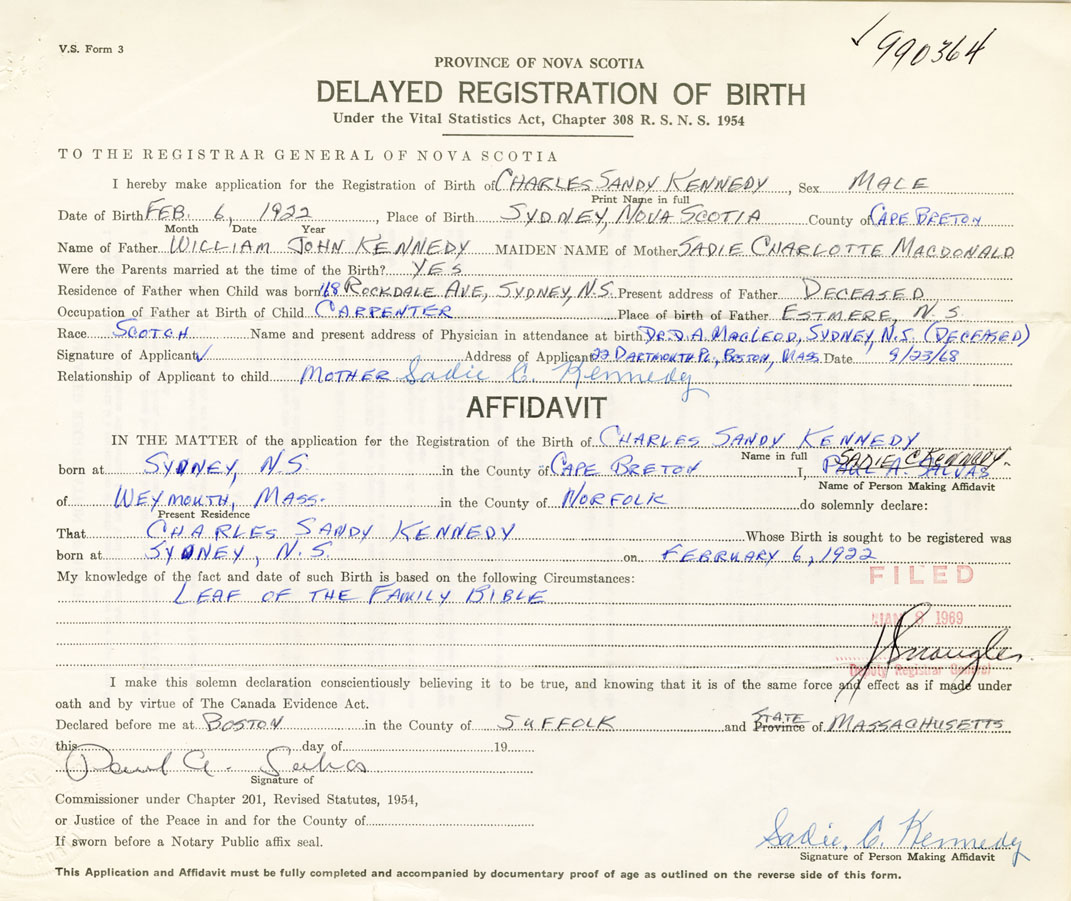 V.S. Form 3
✓990364
PROVINCE OF NOVA SCOTIA
DELAYED REGISTRATION OF BIRTH
Under the Vital Statistics Act, Chapter 308 R. S. N. S. 1954
TO THE REGISTRAR GENERAL OF NOVA SCOTIA
I hereby make application for the Registration of Birth of CHARLES SANDY KENNEDY, Sex MALE
Print Name in full
Date of Birth FEB. 6, 1922, Place of Birth SYDNEY, NOVA SCOTIA County of CAPE BRETON
Month Date Year
Name of Father WILLIAM JOHN KENNEDY MAIDEN NAME of Mother SADIE CHARLOTTE MACDONALD
Were the Parents married at the time of the Birth? YES
Residence of Father when Child was born 168 ROCKDALE AVE, SYDNEY, N.S. Present address of Father DECEASED
Occupation of Father at Birth of Child CARPENTER Place of birth of Father ESTMERE, N.S.
Race SCOTCH Name and present address of Physician in attendance at birth DR. D. A. MACLEOD, SYDNEY, N.S. (DECEASED)
Signature of Applicant ✓ Address of Applicant 22 DARTMOUTH PL, BOSTON, MASS. Date 9/23/68
Relationship of Applicant to child MOTHER Sadie C. Kennedy
AFFIDAVIT
IN THE MATTER of the application for the Registration of the Birth of CHARLES SANDY KENNEDY
Name in full SADIE C KENNEDY
born at SYDNEY, N.S. in the County of CAPE BRETON I, PAUL A. SALVAS
Name of Person Making Affidavit
of WEYMOUTH, MASS. in the County of NORFOLK do solemnly declare:
Present Residence
That CHARLES SANDY KENNEDY Whose Birth is sought to be registered was
born at SYDNEY, N.S. on FEBRUARY 6, 1922
FILED
My knowledge of the fact and date of such Birth is based on the following Circumstances:
LEAF OF THE FAMILY BIBLE
JAN 8 1969
Deputy Registrar General
I make this solemn declaration conscientiously believing it to be true, and knowing that it is of the same force and effect as if made under
oath and by virtue of The Canada Evidence Act.
Declared before me at BOSTON in the County of SUFFOLK and STATE Province of MASSACHUSETTS
this day of 19
Paul A. Salvas
Signature of
Commissioner under Chapter 201, Revised Statutes, 1954,
or Justice of the Peace in and for the County of
If sworn before a Notary Public affix seal.
Sadie C. Kennedy
Signature of Person Making Affidavit
This Application and Affidavit must be fully completed and accompanied by documentary proof of age as outlined on the reverse side of this form.